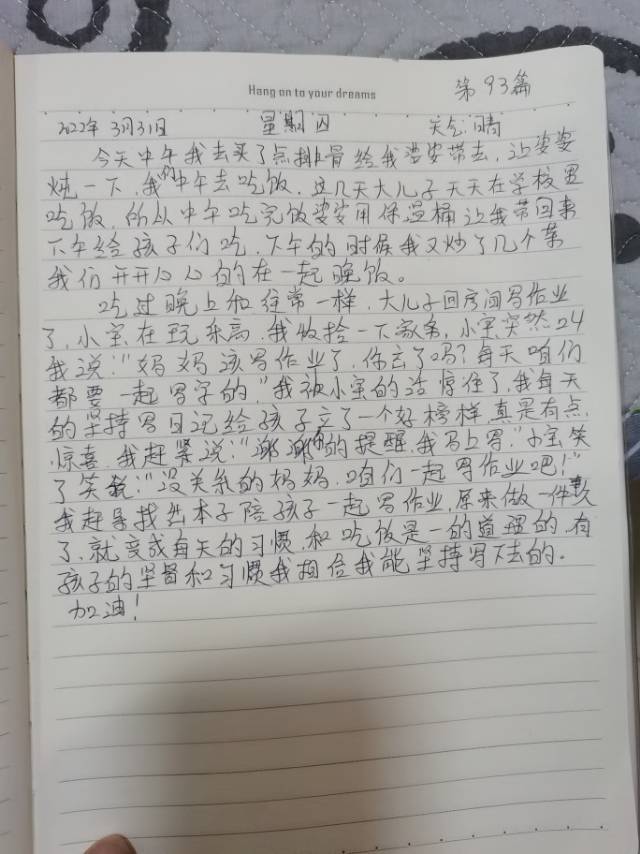 Hang on to your dreams
第93篇
2022年3月31日 星期四 天气:晴
今天中午我去买了点排骨给我婆婆带去,让婆婆
炖一下,我们中午去吃饭,这几天大儿子天天在学校里
吃饭,所以中午吃完饭婆婆用保温桶让我带回来
下午给孩子们吃,下午的时候我又炒了几个菜
我们开开心心的在一起晚饭。
吃过晚上和往常一样,大儿子回房间写作业
了,小宝在玩乐高,我收拾一下家务,小宝突然24
我说:“妈妈该写作业了,你忘了吗?每天咱们
都要一起写字的,”我被小宝的话惊住了,我每天
的坚持写日记给孩子立了一个好榜样,真是有点
惊喜,我赶紧说:“谢谢你的提醒,我马上写,”小宝笑
了笑说:“没关系的妈妈,咱们一起写作业吧!”
我赶导找出本子陪孩子一起写作业,原来做一件事久
了,就变成每天的习惯,和吃饭是一的道理的,有
孩子的坚督和习惯我相信我能坚持写下去的。
加油!